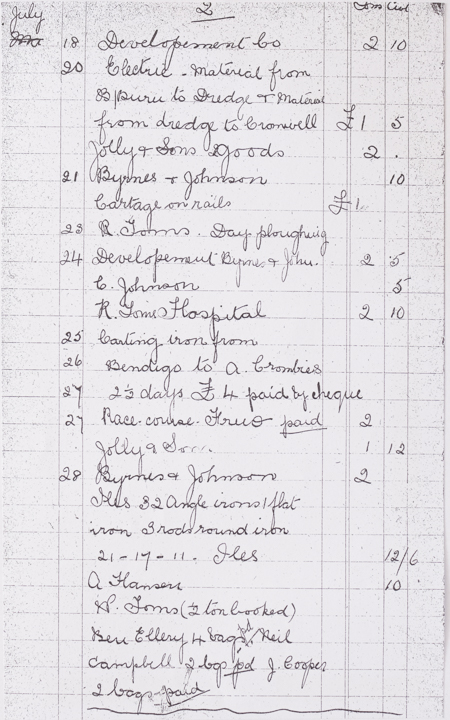 July 2 Tons Cwt
18 Developement Co 2 10
20 Electric - Material from
B/Buru to Dredge & Material
from dredge to Cromwell £1 5
Jolly & Sons Goods 2 .
21 Byrnes & Johnson 10
Cartage on rails £1
23 R. Toms. Day ploughing
24 Developement Byrnes & John. 2 5
C. Johnson 5
R. Toms Hospital 2 10
25 Carting iron from
26 Bendigo to A. Crombies
27 2½ days £4 paid by cheque
27 Race-course paid 2
Jolly & Son 1 12
28 Byrnes & Johnson 2
Iles 32 Angle irons 1 flat
iron 3 rods round iron
21-17-11. Iles 12/6
A Hansen 10
R. Toms (½ ton booked)
Ben Ellery 4 bags pd Neil
Campbell 2 bgs pd J. Cooper
2 bags paid